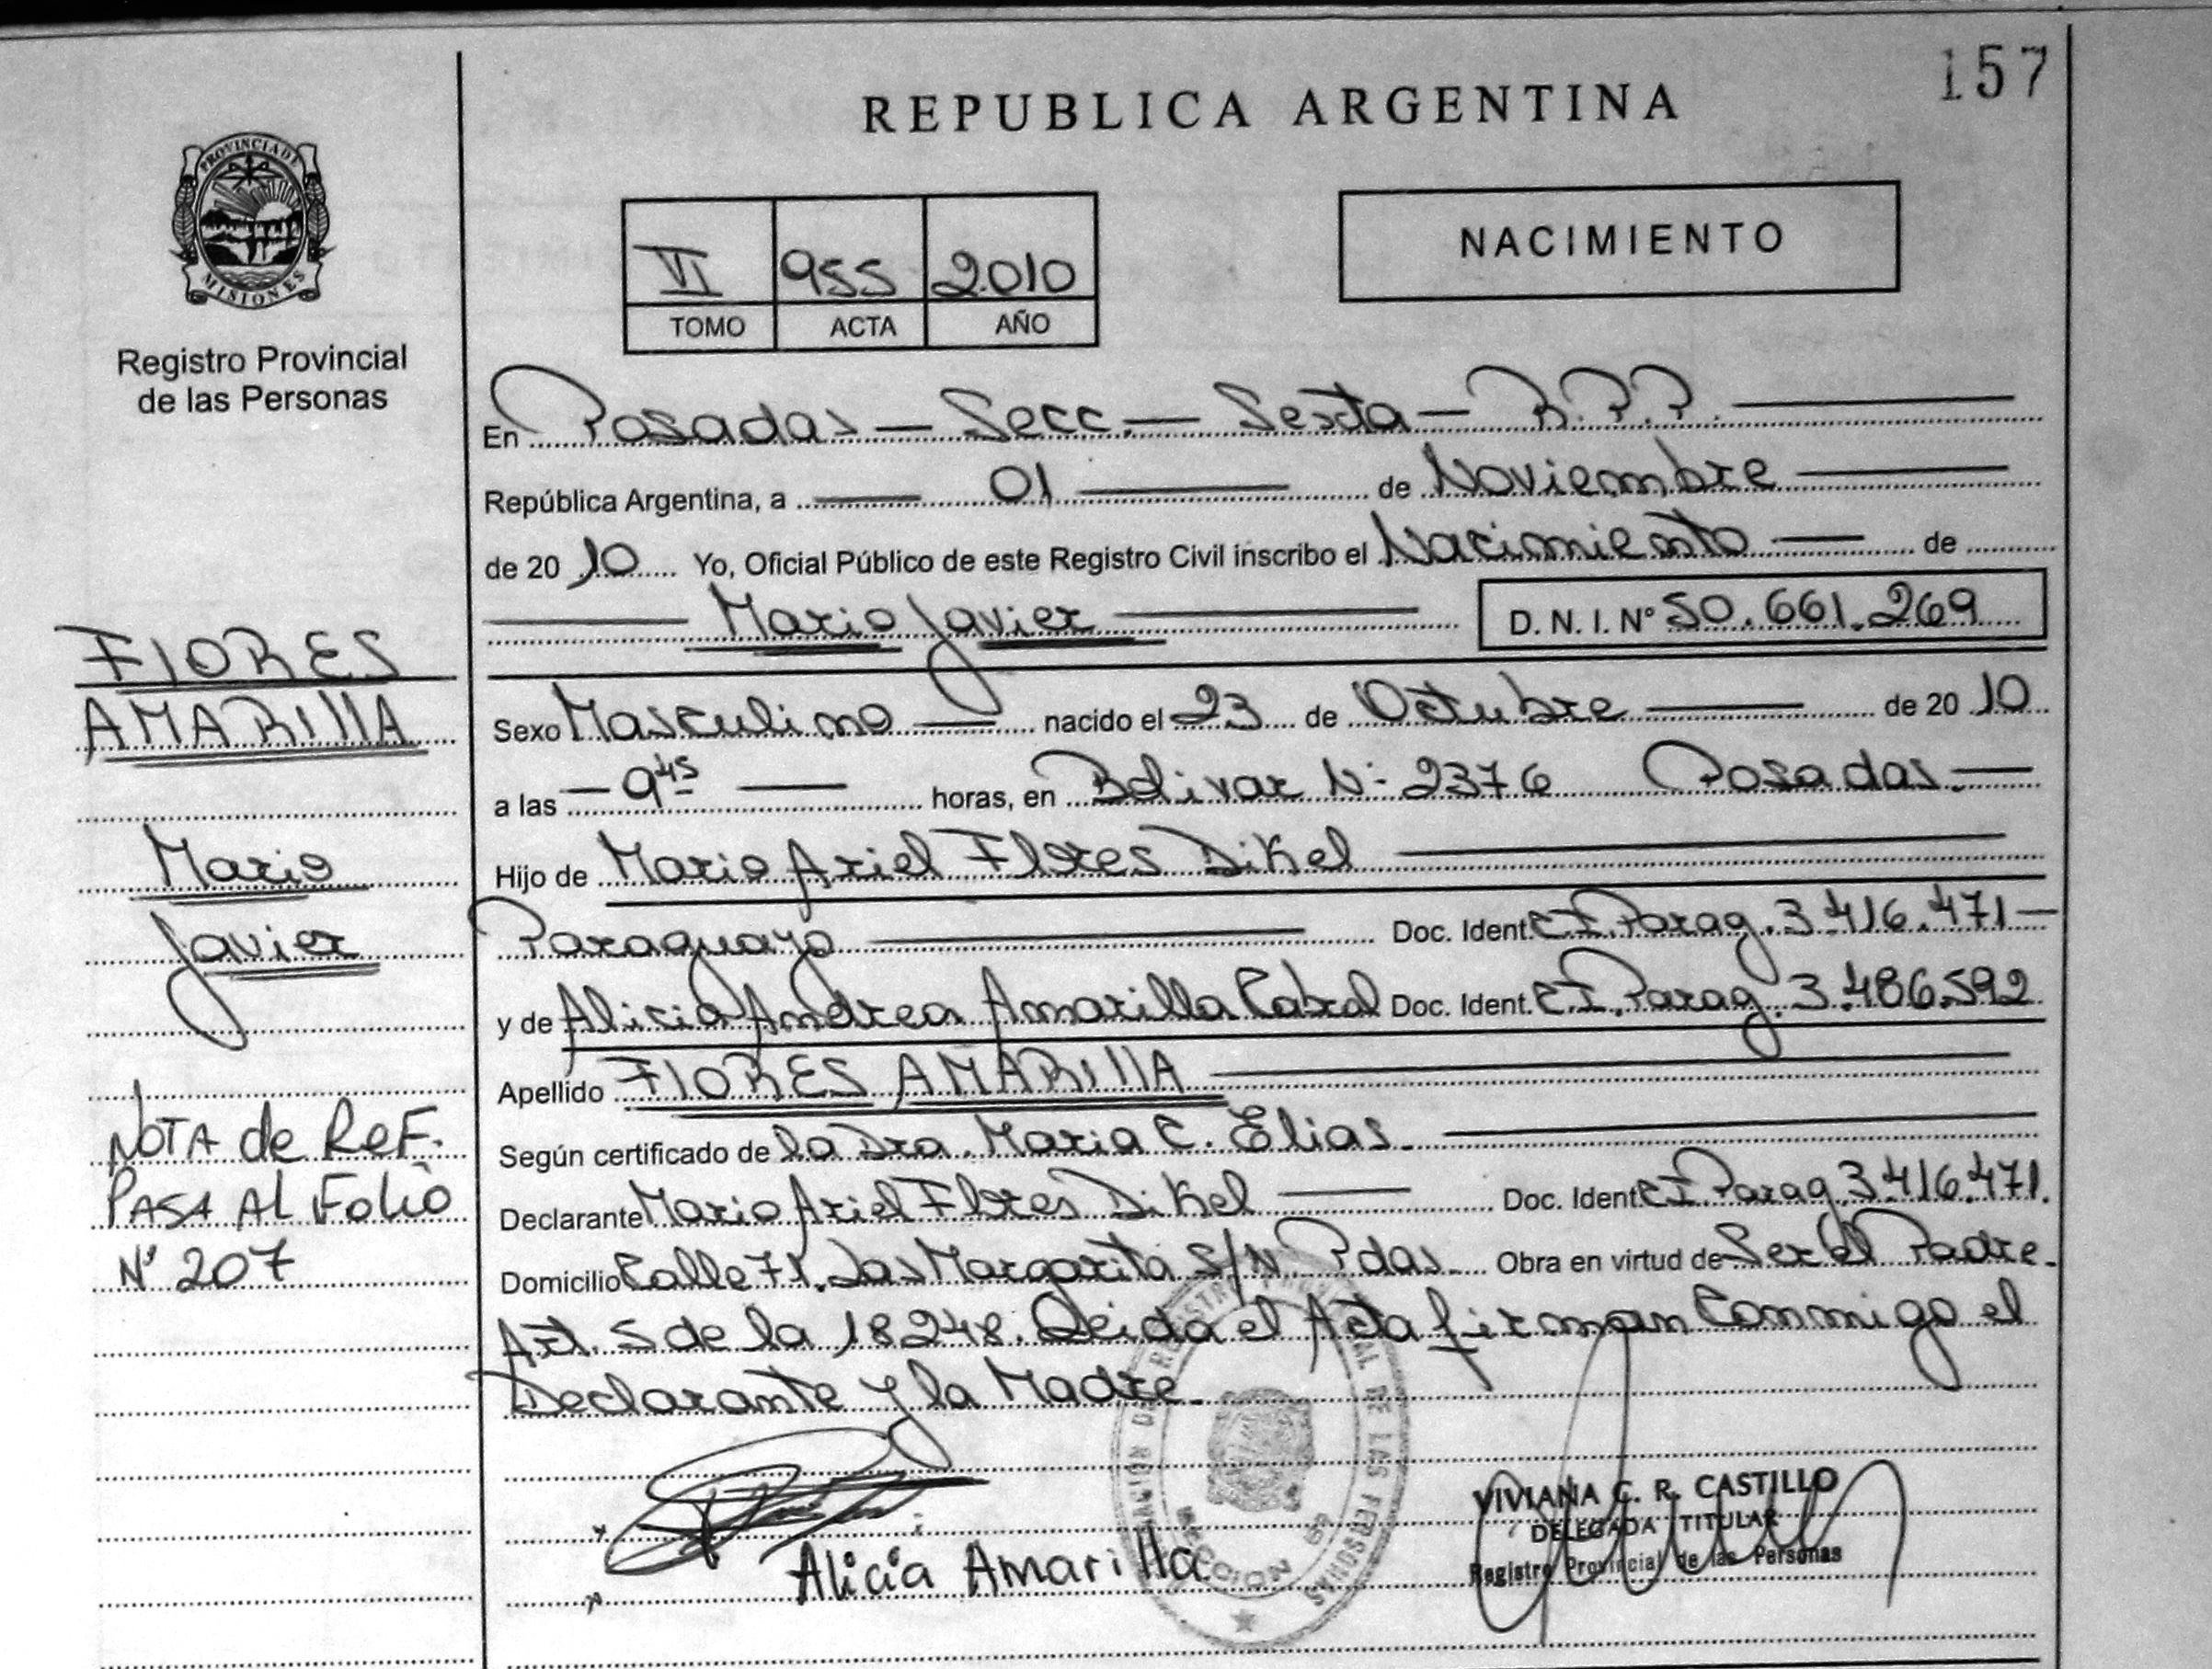 157
REPUBLICA ARGENTINA
PROVINCIA DE
MISIONES
Registro Provincial
de las Personas
VI 955 2010
TOMO ACTA AÑO
NACIMIENTO
En Posadas - Secc. - Sexta - R.P.P.
República Argentina, a 01 de Noviembre
de 20 10 Yo, Oficial Público de este Registro Civil inscribo el Nacimiento de
Mario Javier D. N. I. N° 50.661.269
FlORES
AMARIllA
Mario
Javier
NOTA de ReF.
PASA Al Folio
N° 207
Sexo Masculino nacido el 23 de Octubre de 20 10
a las 9 45 horas, en Bolivar N° 2376 Posadas.
Hijo de Mario Ariel Flores Dikel
Paraguayo Doc. Ident. CI. Parag. 3.416.471
y de Alicia Andrea Amarilla Cabral Doc. Ident. CI. Parag. 3.486.592
Apellido FlORES AMARIllA
Según certificado de la Dra. Maria C. Elias.
Declarante Mario Ariel Flores Dikel Doc. Ident. CI Parag 3.416.471.
Domicilio Calle 71. Las Margarita S/N Pdas. Obra en virtud de Ser el Padre.
Art. 5 de la 18248. Leida el Acta firman Conmigo el
Declarante y la Madre.
Alicia Amarilla
VIVIANA C. R. CASTILLO
DELEGADA TITULAR
Registro Provincial de las Personas
DE LAS PERSONAS
SECCION